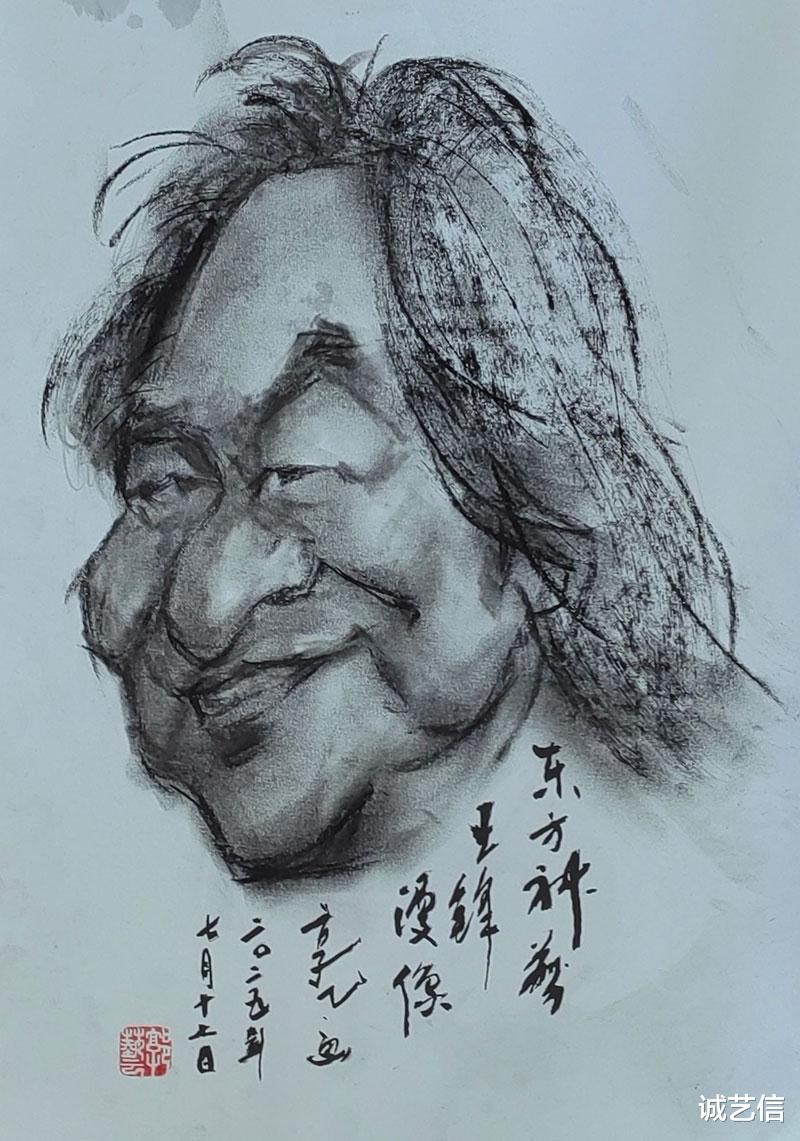 东方神
王锋
漫像
画
二〇二五年
七月十七日
诚艺信